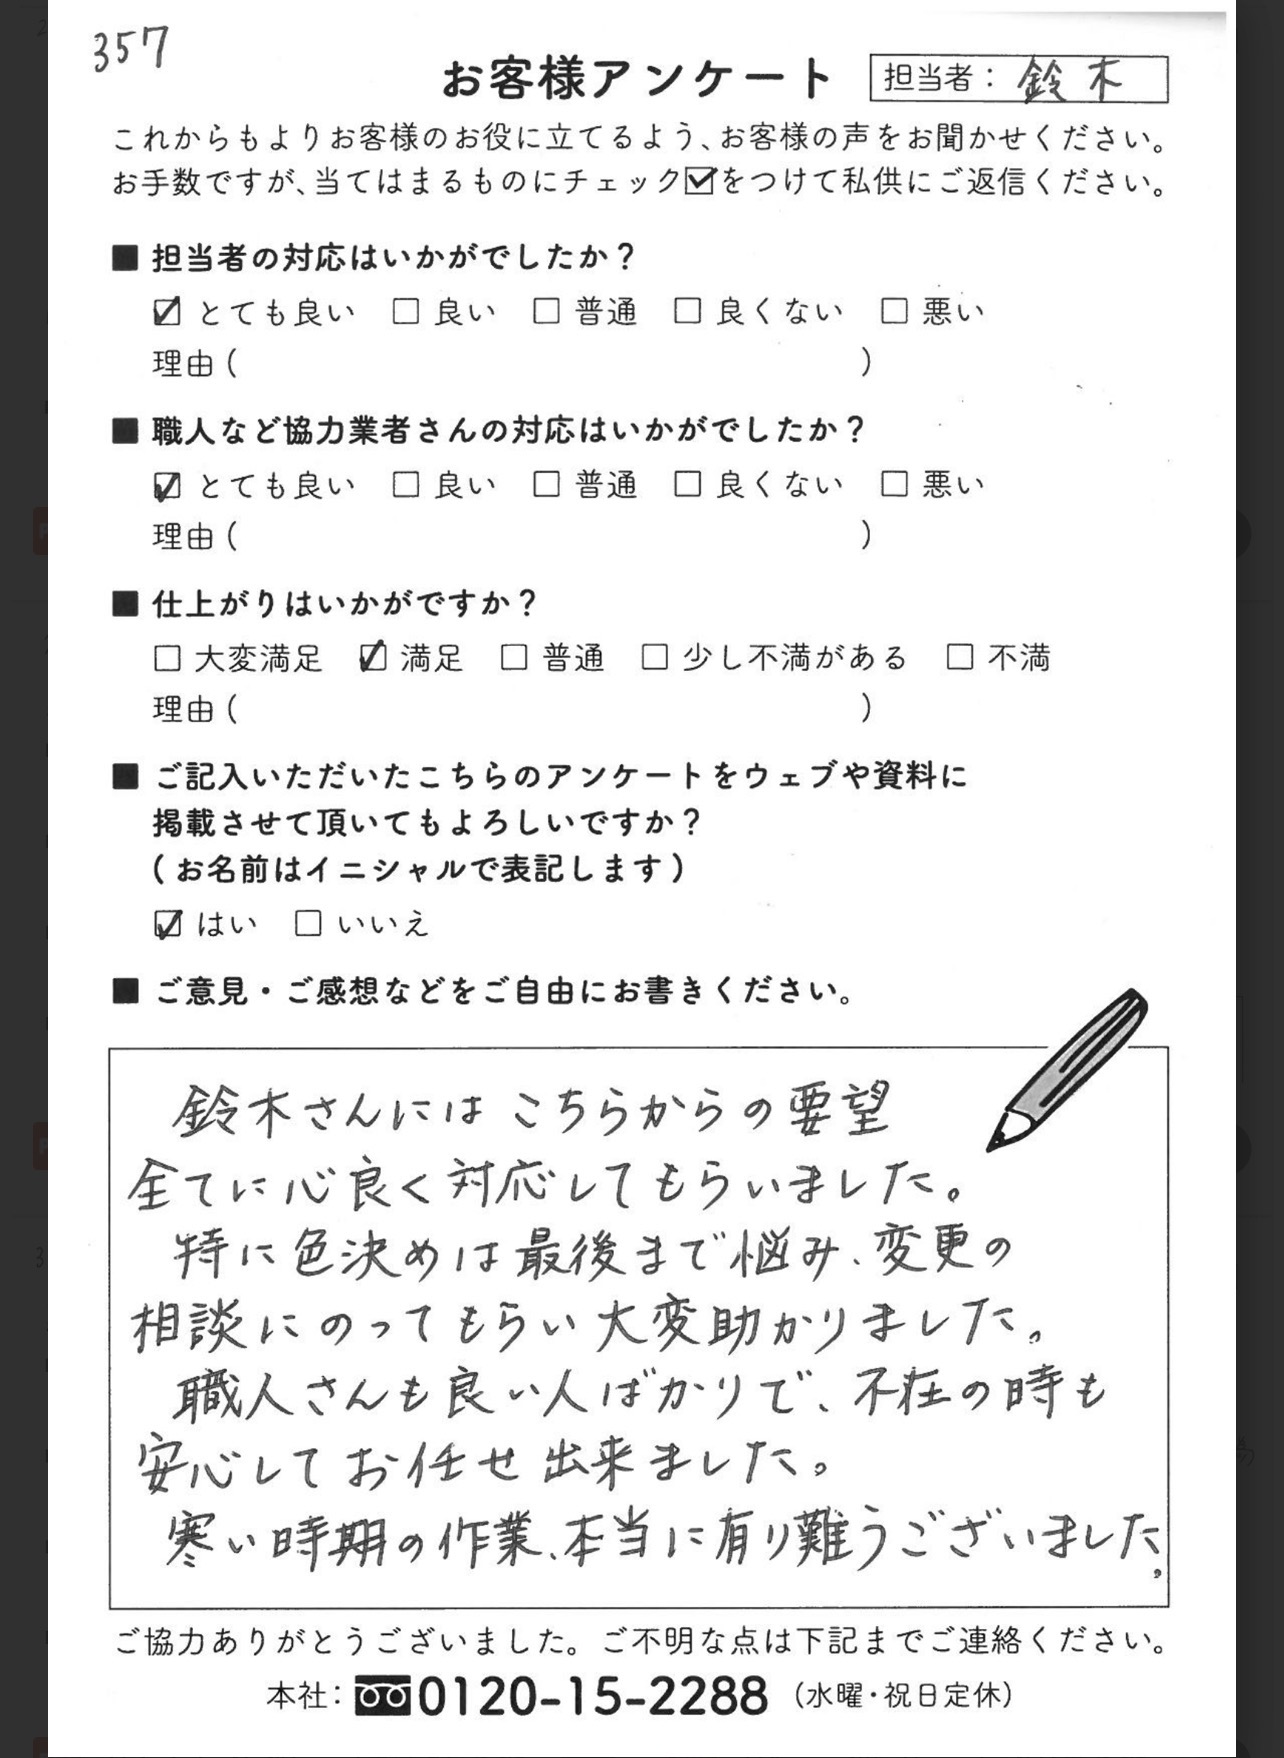 357
お客様アンケート
担当者：鈴木
これからもよりお客様のお役に立てるよう、お客様の声をお聞かせください。
お手数ですが、当てはまるものにチェック☑をつけて私供にご返信ください。
■ 担当者の対応はいかがでしたか？
☑ とても良い □ 良い □ 普通 □ 良くない □ 悪い
理由（ ）
■ 職人など協力業者さんの対応はいかがでしたか？
☑ とても良い □ 良い □ 普通 □ 良くない □ 悪い
理由（ ）
■ 仕上がりはいかがですか？
□ 大変満足 ☑ 満足 □ 普通 □ 少し不満がある □ 不満
理由（ ）
■ ご記入いただいたこちらのアンケートをウェブや資料に
掲載させて頂いてもよろしいですか？
（お名前はイニシャルで表記します）
☑ はい □ いいえ
■ ご意見・ご感想などをご自由にお書きください。
鈴木さんにはこちらからの要望
全てに心良く対応してもらいました。
特に色決めは最後まで悩み、変更の
相談にのってもらい大変助かりました。
職人さんも良い人ばかりで、不在の時も
安心してお任せ出来ました。
寒い時期の作業、本当に有り難うございました。
ご協力ありがとうございました。ご不明な点は下記までご連絡ください。
本社：0120-15-2288（水曜・祝日定休）